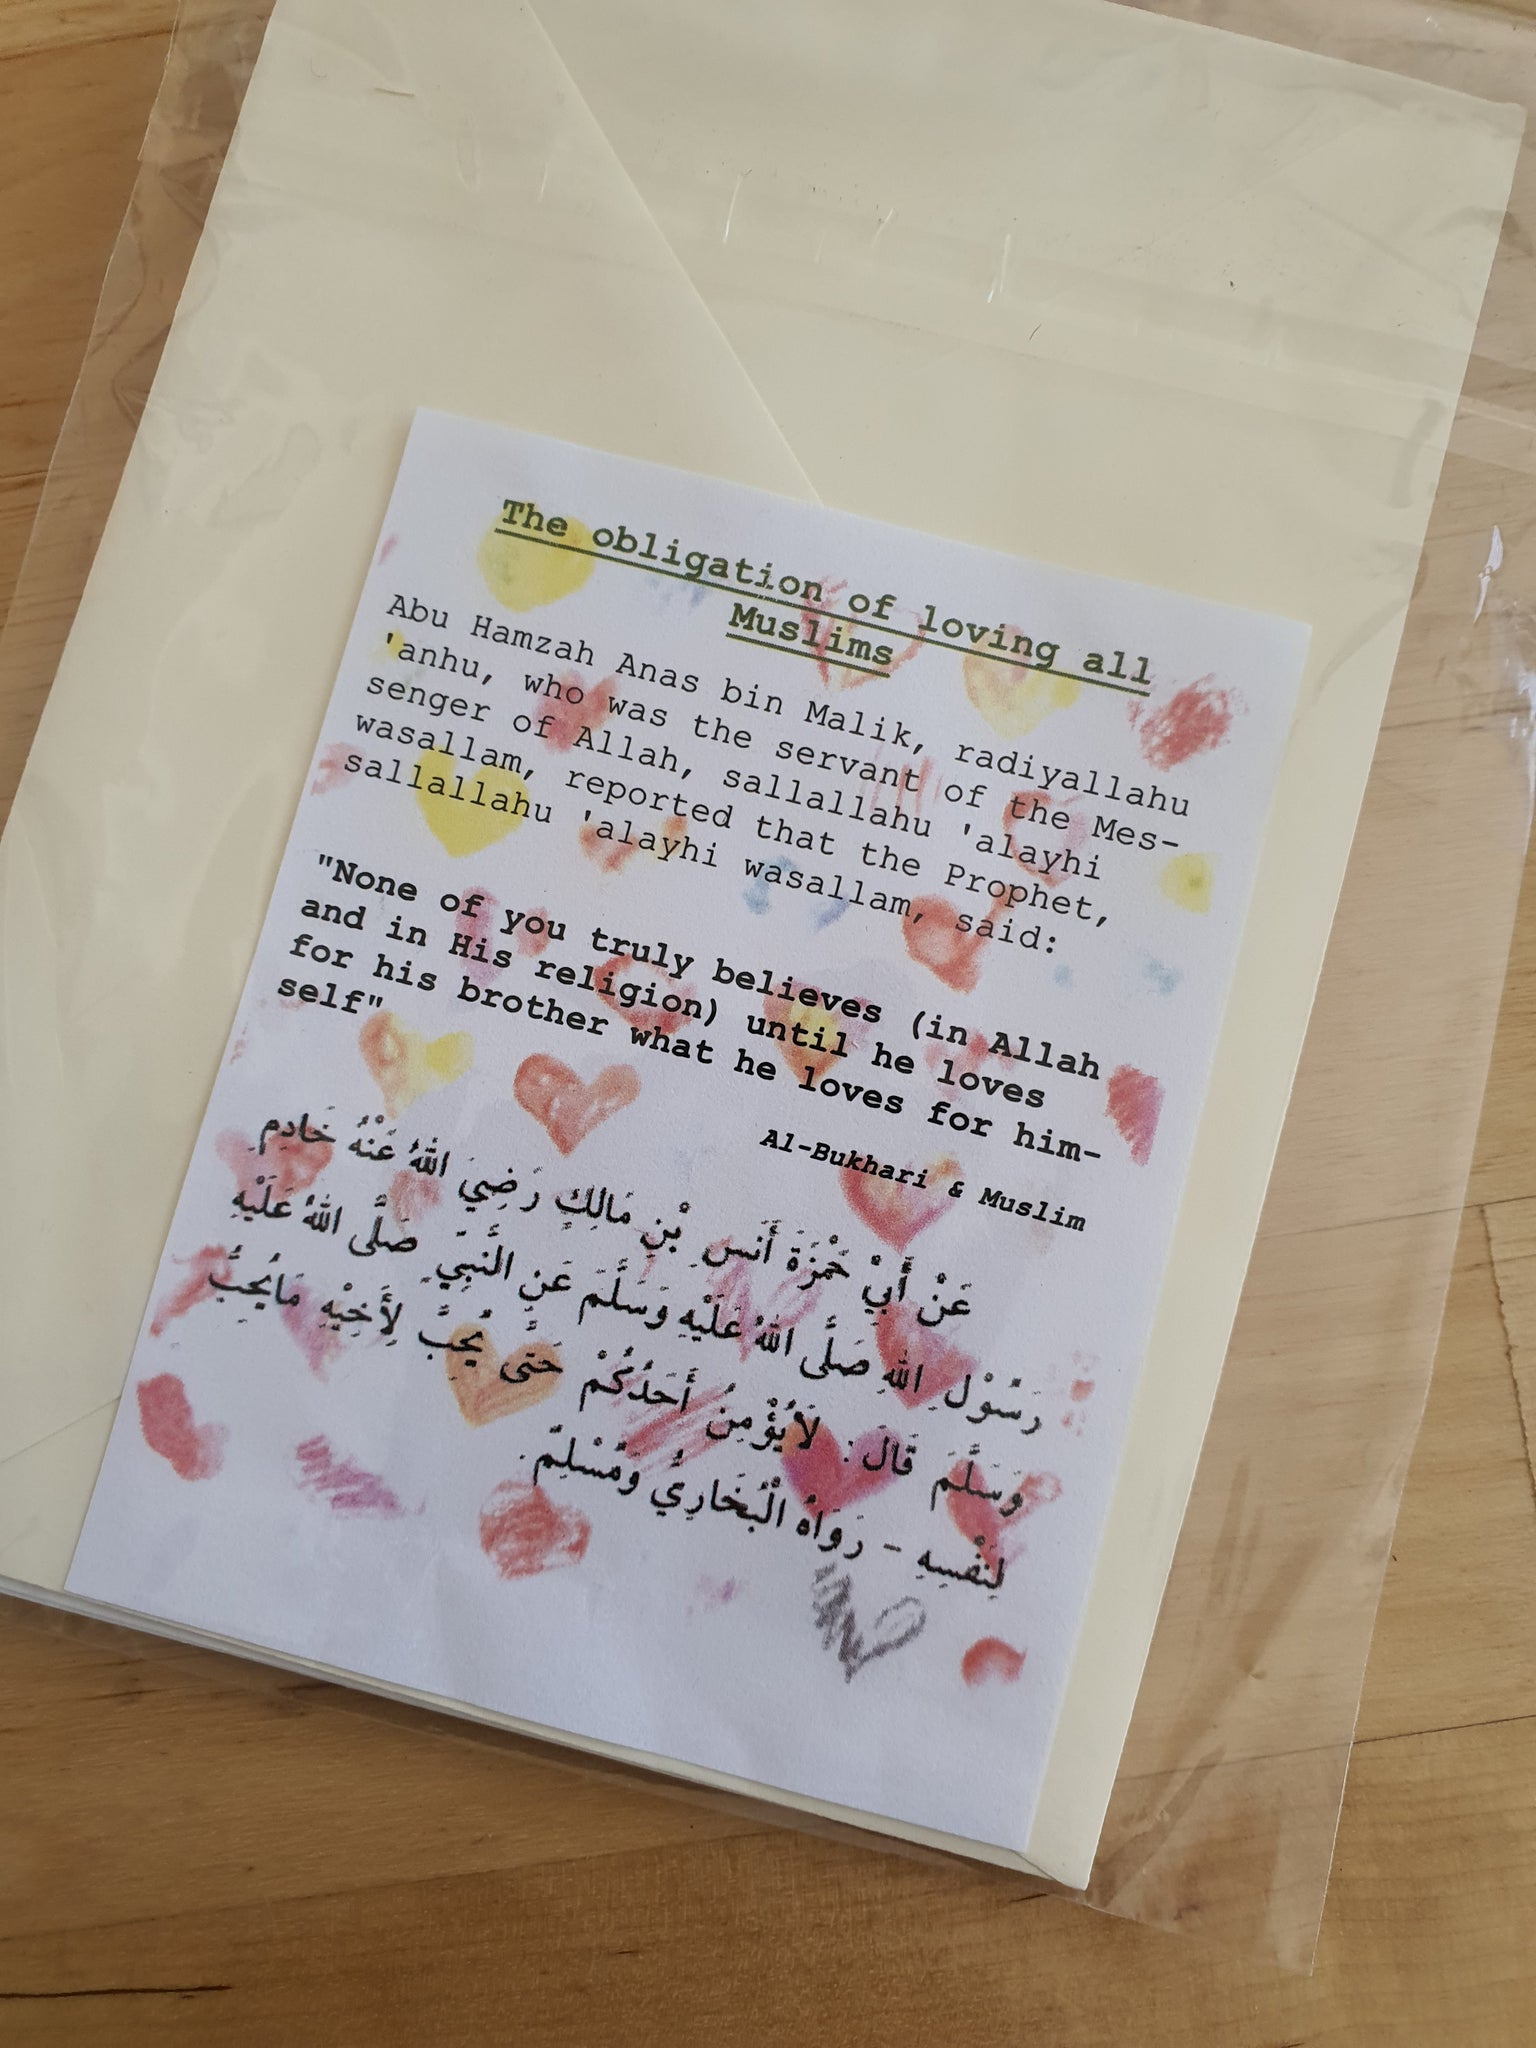 The obligation of loving all
Muslims
Abu Hamzah Anas bin Malik, radiyallahu
'anhu, who was the servant of the Mes-
senger of Allah, sallallahu 'alayhi
wasallam, reported that the Prophet,
sallallahu 'alayhi wasallam, said:
"None of you truly believes (in Allah
and in His religion) until he loves
for his brother what he loves for him-
self"
Al-Bukhari & Muslim
عَنْ أَبِيْ حَمْزَةَ أَنَسِ بْنِ مَالِكٍ رَضِيَ اللهُ عَنْهُ خَادِمِ
رَسُوْلِ اللهِ صَلَّى اللهُ عَلَيْهِ وَسَلَّمَ عَنِ النَّبِيِّ صَلَّى اللهُ عَلَيْهِ
وَسَلَّمَ قَالَ : لَايُؤْمِنُ أَحَدُكُمْ حَتَّى يُحِبَّ لِأَخِيْهِ مَايُحِبُّ
لِنَفْسِهِ - رَوَاهُ الْبُخَارِيُّ وَمُسْلِمٌ.